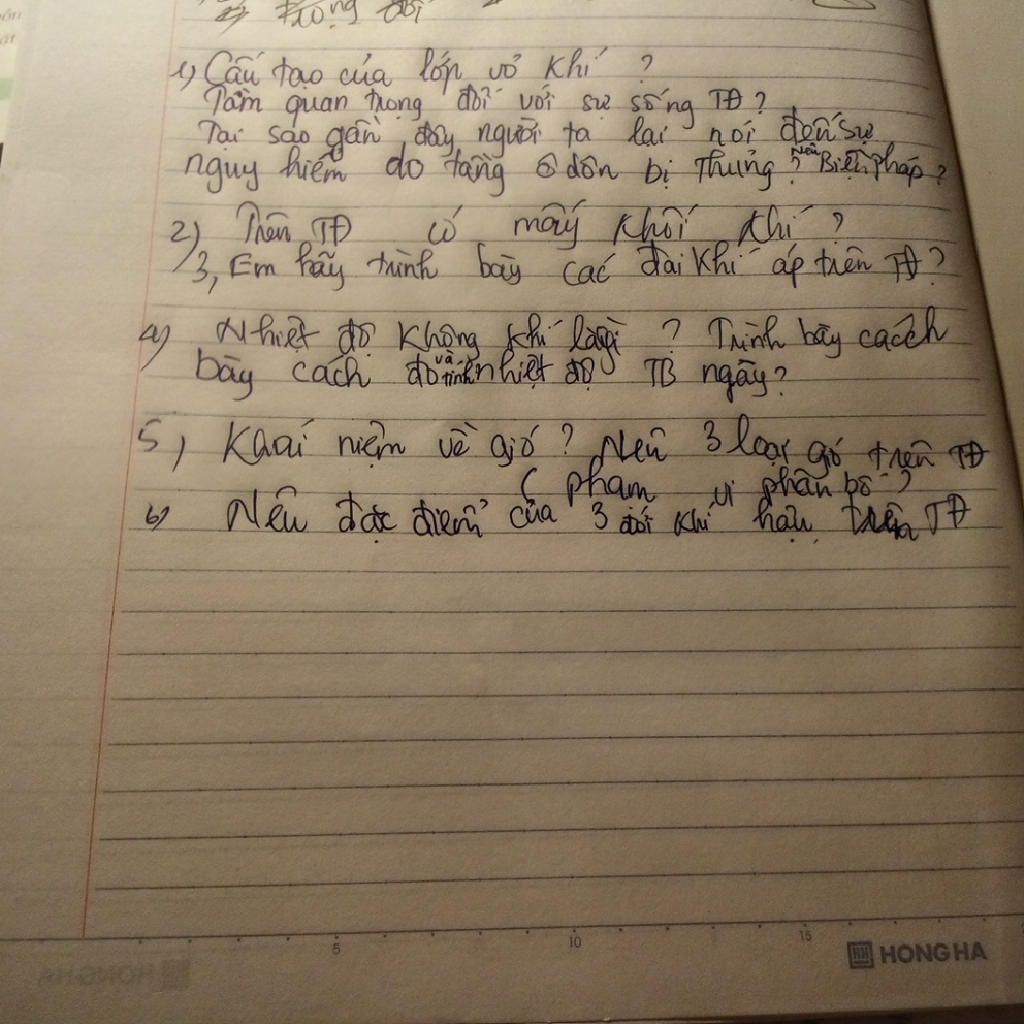 1) Cấu tạo của lớp vỏ khí ?
Tầm quan trọng đối với sự sống TĐ ?
Tại sao gần đây người ta lại nói đến sự
nguy hiểm do tầng ô dôn bị thủng ? Nêu Biện pháp ?
2) Trên TĐ có mấy khối khí ?
3, Em hãy trình bày các đài khí áp trên TĐ ?
4) Nhiệt độ không khí là gì ? Trình bày cách
bày cách đo và tính nhiệt độ TB ngày ?
5) Khái niệm về gió ? Nêu 3 loại gió trên TĐ
( phạm vi phân bố ?
6) Nêu đặc điểm của 3 đới khí hậu trên TĐ
5 10 15
HONG HA